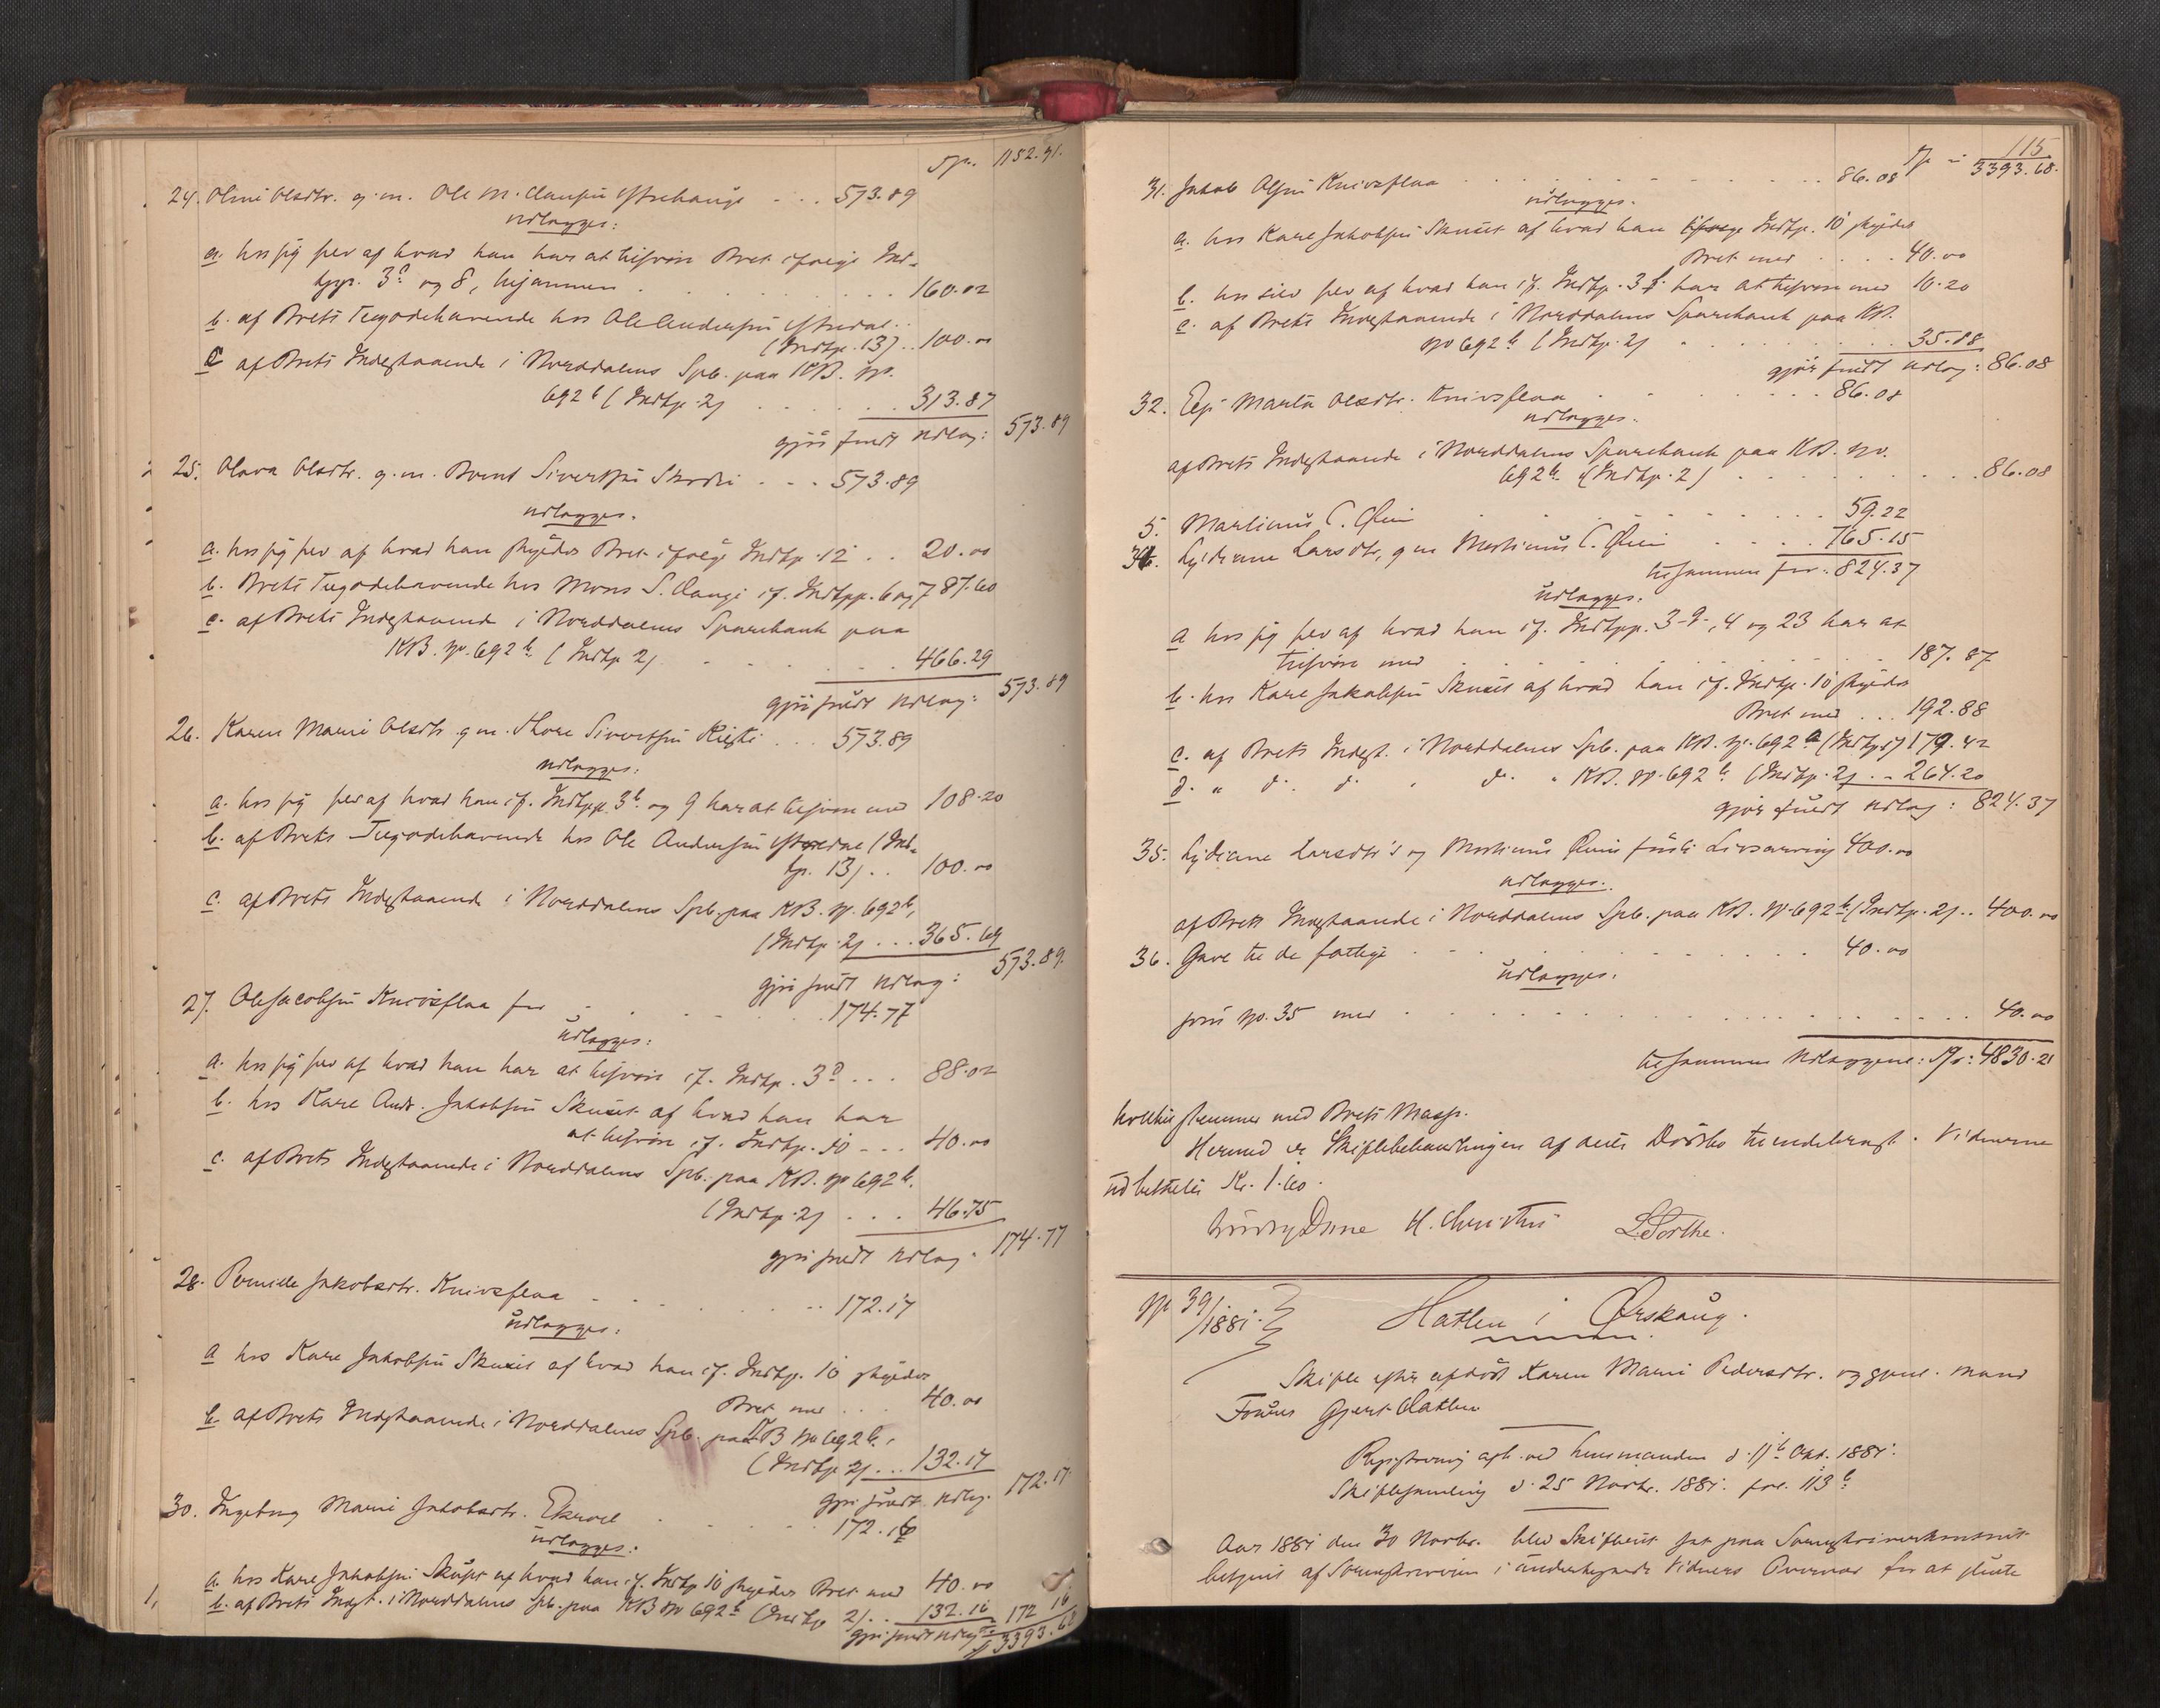 Sp. 1152.71.
24. Oline Olsdtr. g. m. Ole M. Clausen Ytrehauge . . . 573.89
udlægges:
a. hos sig selv af hvad han har at tilsvare Boet ifølge Ind-
tpp. 3d og 8, tilsammen . . . 160.02
b. af Boets Tilgodehavende hos Ole Andersen Ytredal . .
(Indtp. 13) . . 100.00
c af Boets Indestaaende i Norddalens Spb. paa KB. No.
692b (Indtp. 2) . . . 313.87
gjør fuldt Udlæg: 573.89
25. Olava Olsdtr. g. m. Bernt Sivertsen Skodje . . . 573.89
udlægges.
a. hos sig selv af hvad han skylder Boet ifølge Indtp. 12 . . 20.00
b. Boets Tilgodehavende hos Mons S. Vange if. Indtpp. 6 og 7 87.60
c. af Boets Indestaaende i Norddalens Sparebank paa
KB. No. 692b (Indtp 2) . . . 466.29
gjør fuldt Udlæg: 573.89
26. Karen Marie Olsdtr. g. m. Thore Sivertsen . . . 573.89
udlægges:
a. hos sig selv af hvad han if. Indtpp. 3b og 9 har at tilsvare med 108.20
b. af Boets Tilgodehavende hos Ole Andersen Ytredal (Ind-
tp. 13) . . 100.00
c. af Boets Indestaaende i Norddalens Spb. paa KB. No. 692b,
(Indtp. 2) . . . 365.69
gjør fuldt Udlæg: 573.89.
27. Ole Jacobsen Knivsflaa for . . . 174.77
udlægges:
a. hos sig selv af hvad han har at tilsvare if. Indtp. 3d . . . 88.02
b. hos Kare Andr. Jakobsen af hvad han har
at tilsvare if. Indtp. 10 . . . 40.00
c. af Boets Indestaaende i Norddalens Spb. paa KB. No 692b.
(Indtp. 2) . . . 46.75
gjør fuldt Udlæg. 174.77
28. Pernille Jakobsdtr. Knivsflaa . . . 172.17
udlægges:
a hos Kare Jakobsen af hvad han if. Indtp. 10 skylder
Boet med . . . 40.00
b. af Boets Indestaaende i Norddalens Spb. paa KB No 692b.
(Indtp 2) . . . 132.17
gjør fuldt Udlæg. 172.17
30. Ingeborg Marie Jakobsdtr. Ekrevel . . . 172.16
udlægges:
a. hos Kare Jakobsen af hvad han if. Indtp 10 skylder Boet med 40.00
b. af Boets Indest. i Norddalens Spb. paa KB No 692b (Indtp 2) . . 132.16 172 16
gjør fuldt Udlæg 3393.68
115
Sp = 3393.68.
31. Jakob Olsen Knivsflaa . . . 86.08
udlægges.
a. hos Kare Jakobsen af hvad han ifølge Indtp. 10 skylder
Boet med . . . 40.00
b. hos selv af hvad han if. Indtp. 3f. har at tilsvare med 10.20
c. af Boets Indestaaende i Norddalens Sparebank paa KB.
No 692b (Indtp. 2) . . . 35.88
gjør fuldt Udlæg: 86.08
32. Marta Olsdtr. Knivsflaa . . . 86.08
udlægges.
af Boets Indestaaende i Norddalens Sparebank paa KB. No.
692b (Indtp. 2) . . . 86.08
5. Martinus C. Øien . . . 59.22
34. Lydianne Larsdtr, g m Martinus C. Øien . . . 765.15
tilsammen for: 824.37
udlægges.
a hos sig selv af hvad han if. Indtpp. 3-9-, 4 og 23 har at
tilsvare med . . . 187.87
b. hos Kare Jakobsen af hvad han if. Indtp. 10 skylder
Boet med . . . 192.88
c. af Boets Indest. i Norddalens Spb. paa KB. No. 692a (Indtp 1) 179.42
d. " d. d. " d. " KB. No. 692b (Indtp. 2) . . 264.20
gjør fuldt Udlæg: 824.37
35. Lydianne Larsdtr's og Martinus Øiens Livsarving 400.00
udlægges.
af Boets Indestaaende i Norddalens Spb. paa KB. No. 692b (Indtp. 2) . . 400.00
36. Gave til de fattige . . . 40.00
udlægges.
som No. 35 med . . . 40.00
tilsammen Udlæggene: Sp: 4830.21
hvilket stemmer med Boets Masse.
Hermed er Skiftebehandlingen af dette Dødsbo tilendebragt. Vidnerne
udbetales Kr. 1.60.
H. Christie L. Sorthe.
No 39/1881.
Hatlen i Ørskoug.
Skifte efter afdøde Karen Marie Pedersdtr. og gjenl. Mand
Gjert Hatlen
Registrering afh. ved Lensmanden d. 11te Okt. 1881.
Skiftesamling d. 25 Novbr. 1881. fol. 113b
Aar 1881 den 30 Novbr. blev Skifteret sat paa Sorenskriverkontoret
betjent af Sorenskriveren i undertegnede Vidners Overvær for at slutte